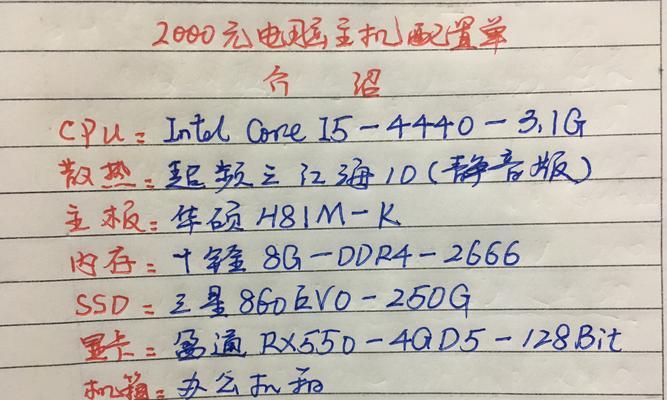 2000元电脑主机配置单
介 绍
CPU：Intel Core I5-4440-3.1G
散热：超频三红海10（静音版）
主板：华硕H81M-K
内存：十铨8G-DDR4-2666
SSD：三星860EVO-250G
显卡：盈通RX550-4GD5-128Bit
机箱：办公机箱